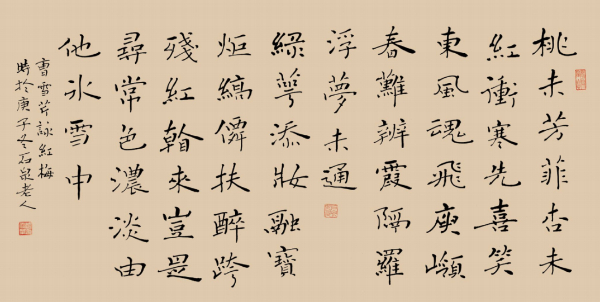 桃未芳菲杏未
紅衝寒先喜笑
東風魂飛庾嶺
春難辨霞隔羅
浮夢未通
綠萼添妝融寶
炬縞僊扶醉跨
殘紅看來豈是
尋常色濃淡由
他氷雪中
曹雪芹詠紅梅
時於庚子冬石泉老人